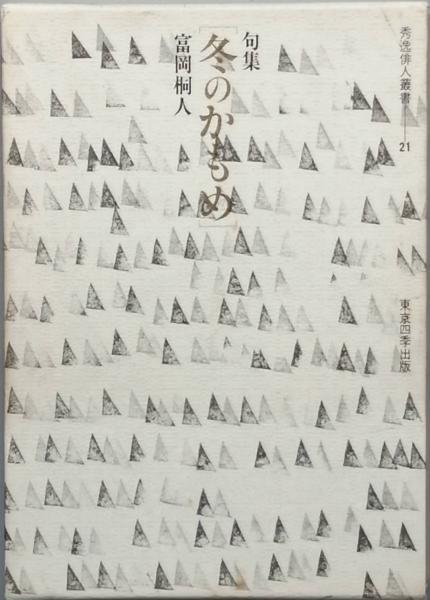 秀逸俳人叢書──21
句集
[冬のかもめ]
富岡桐人
東京四季出版